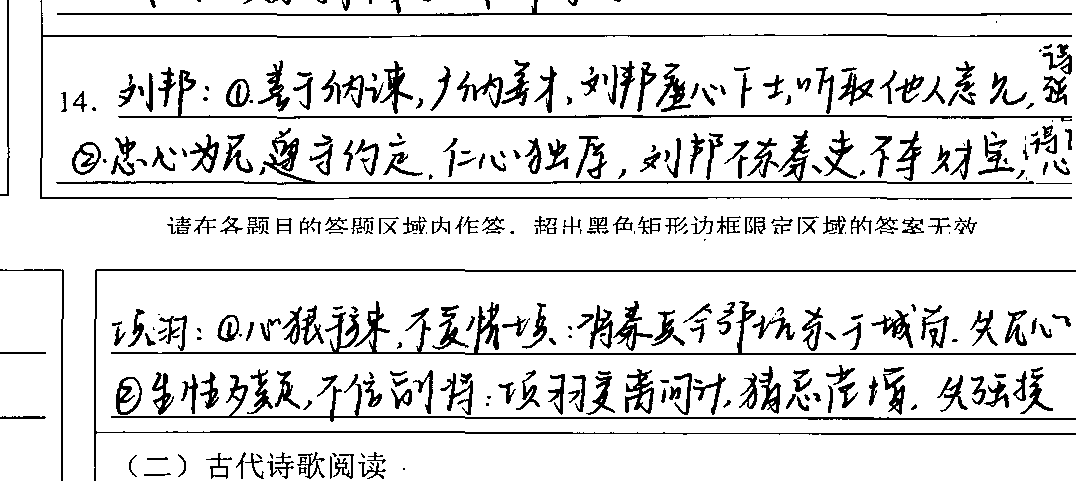 14. 刘邦：①善于纳谏，广纳善才，刘邦虚心下士，听取他人意见，
②忠心为民，遵守约定，仁心独厚，刘邦不杀秦吏，不幸财宝，得民心
请在各题目的答题区域内作答，超出黑色矩形边框限定区域的答案无效
项羽：①心狠手辣，不爱惜士卒：将秦兵全部坑杀于城南，失民心
②生性多疑，不信副将：项羽受离间计，猜忌范增，失强援
（二）古代诗歌阅读